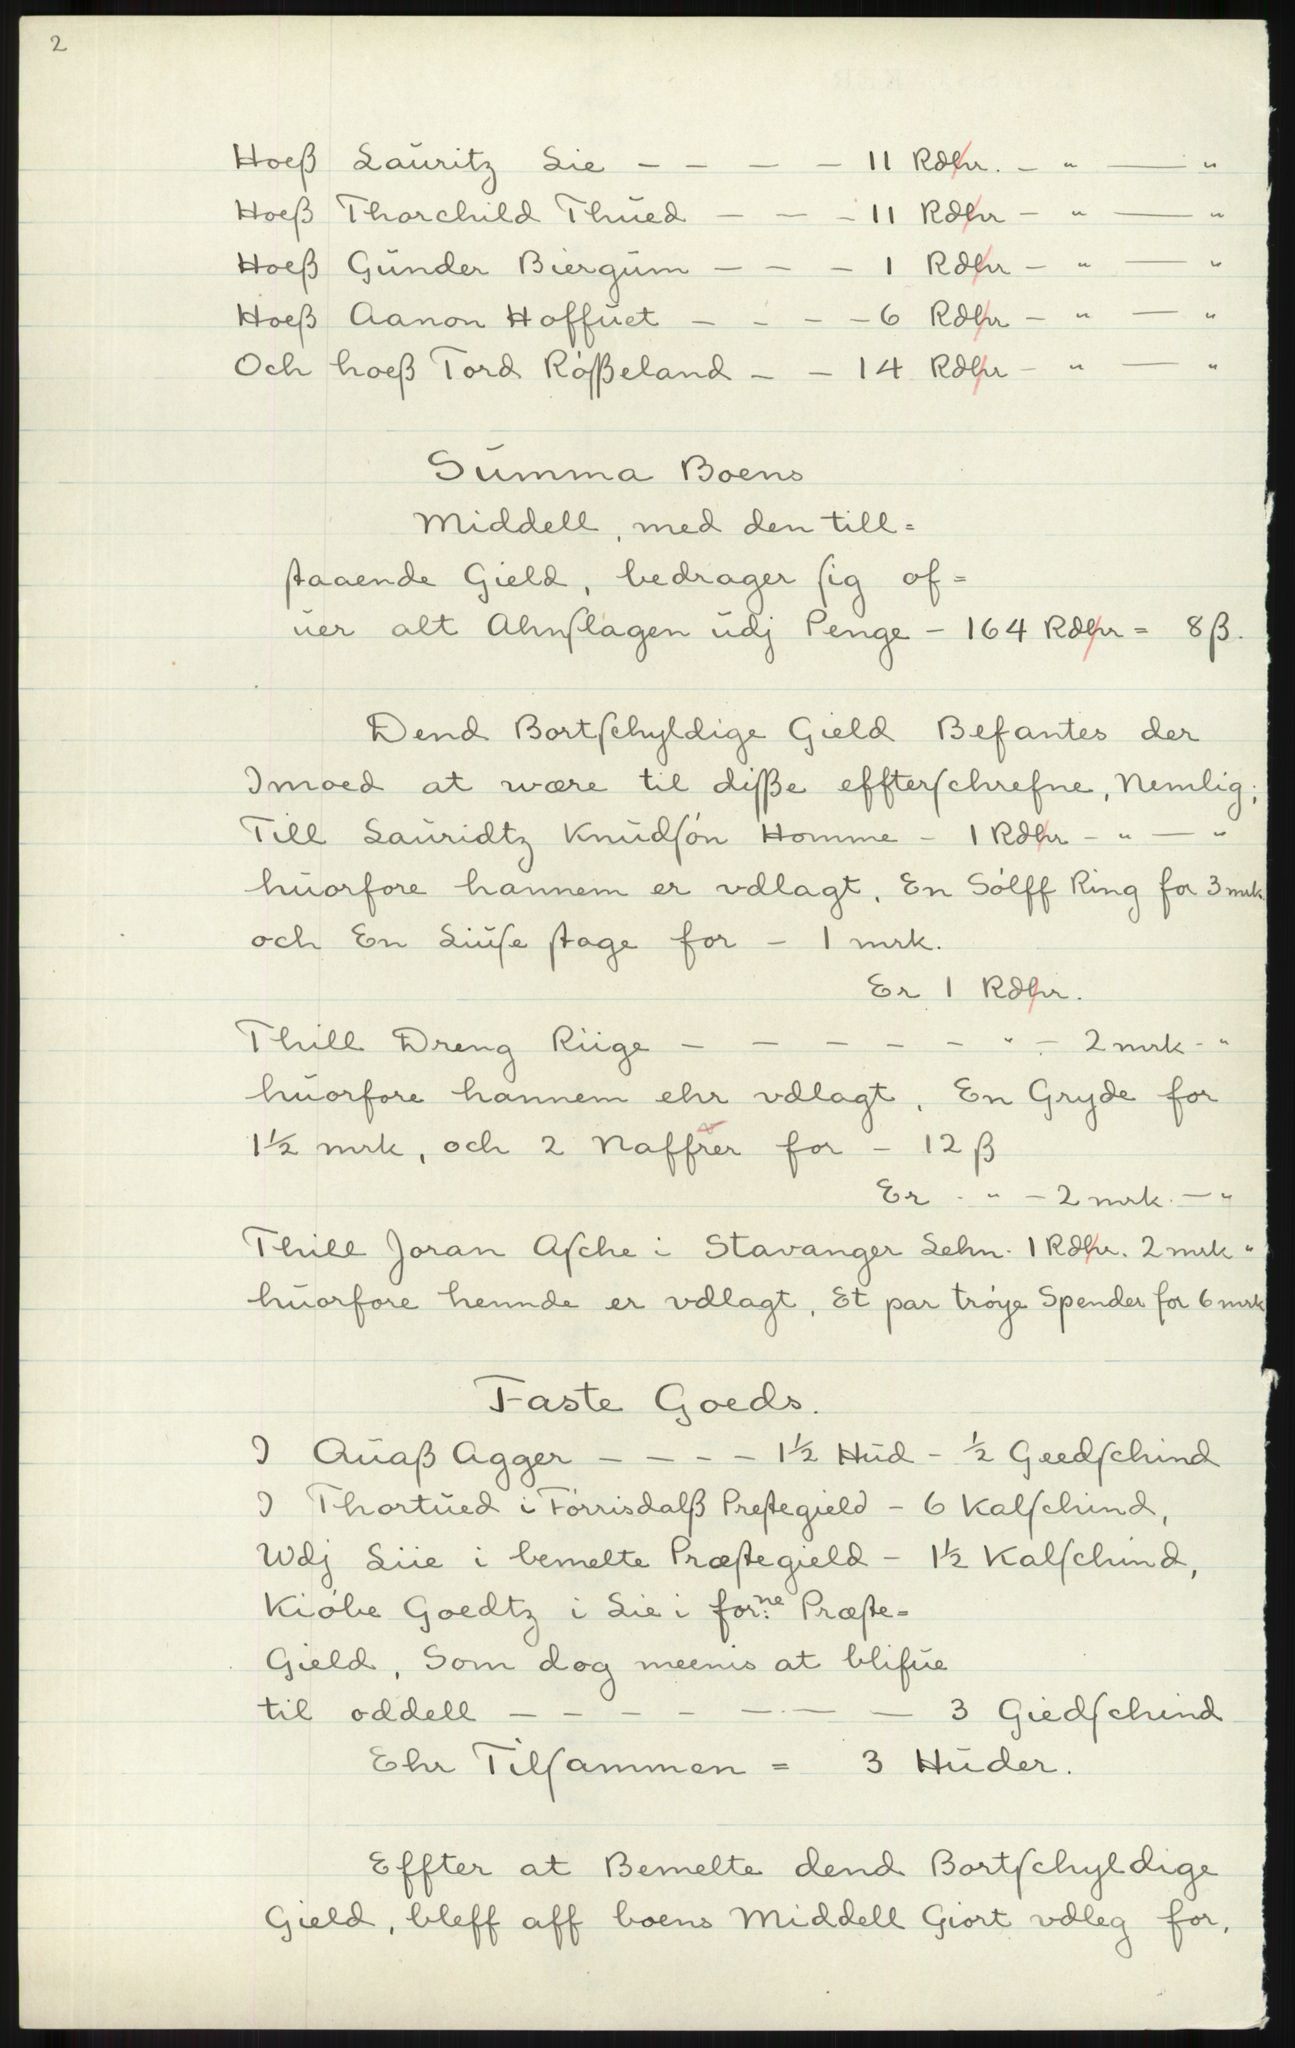 2
Hoeß Lauritz Lie – – – – 11 Rdlr. – " — "
Hoeß Thorchild Thued – – – 11 Rdlr – " — "
Hoeß Gunder Biergum – – – 1 Rdlr – " — "
Hoeß Aanon Hoffuet – – – – 6 Rdlr – " — "
Och hoeß Tord Rößeland – – 14 Rdlr – " — "
Summa Boens
Middell, med den till=
staaende Gield, bedrager sig of=
uer alt Ahnslagen udj Penge – 164 Rdlr = 8 ß.
Dend Bortschyldige Gield Befantes der
Imoed at wære til disse effterschrefne, Nemlig;
Till Lauridtz Knudsön Homme – 1 Rdlr – " — "
huorfore hannem er vdlagt, En Sölff Ring for 3 mrk
och En Liuse stage for – 1 mrk.
Er 1 Rdlr.
Thill Dreng Riige – – – – – " – 2 mrk – "
huorfore hannem ehr vdlagt, En Gryde for
1½ mrk, och 2 Naffrer for – 12 ß
Er – " – 2 mrk. – "
Thill Joran Asche i Stavanger Lehn. 1 Rdlr. 2 mrk "
huorfore hennde er vdlagt, Et par tröye Spender for 6 mrk
Faste Goeds.
I Quaß Agger – – – – 1½ Hud – ½ Geedschind
I Thortued i Förrisdalß Prestegield – 6 Kalschind,
Wdj Liie i bemelte Præstegield – 1½ Kalschind,
Kiöbe Goedtz i Lie i forne: Præste=
Gield, Som dog meenis at blifue
til oddell – – – – – – – 3 Giedschind
Ehr Tilsammen = 3 Huder.
Effter at Bemelte dend Bortschyldige
Gield, bleff aff boens Middell Giort vdleg for,